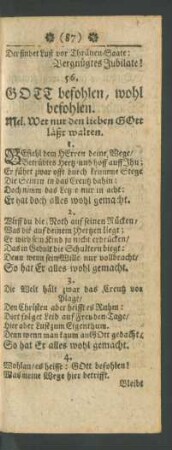 (87)
Der findet Lust vor Thränen-Saate:
Vergnügtes Jubilate!
56.
GOTT befohlen, wohl
befohlen.
Mel. Wer nur den lieben GOtt
läßt walten.
1.
BEfiehl dem HErren deine Wege/
Betrübtes Hertz und hoff auff Ihn;
Er führt zwar offt durch krumme Stege
Die Seinen in das Creutz dahin:
Doch nimm das Creutz nur in acht:
Er hat doch alles wohl gemacht.
2.
Wirff du die Noth auf seinen Rücken/
Was dir auf deinem Hertzen liegt;
Er wird sein Kind ja nicht erdrücken/
Das in Gedult die Schultern biegt:
Denn wenn sein Wille nur vollbracht/
So hat Er alles wohl gemacht.
3.
Die Welt hält zwar das Creutz vor
Plage/
Den Christen aber heißt es Ruhm:
Dort folget Leid auf Freuden-Tage/
Hier aber Lust zum Eigenthum.
Denn wenn man kaum an GOtt gedacht/
So hat Er alles wohl gemacht.
4.
Wohlan/es heißt: GOtt befohlen!
Was meine Wege hier betrifft.
Bleibt